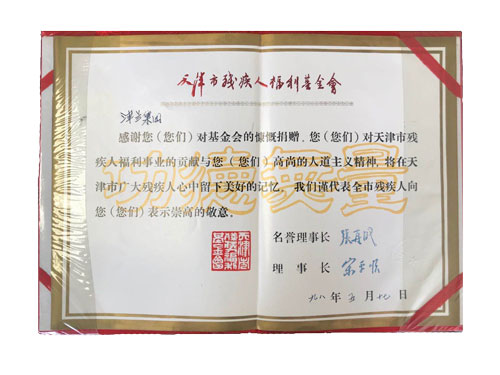 天津市残疾人福利基金會
感谢您（您们）对基金会的慷慨捐赠。您（您们）对天津市残
疾人福利事业的贡献与您（您们）高尚的人道主义精神，将在天
津市广大残疾人心中留下美好的记忆。我们谨代表全市残疾人向
您（您们）表示崇高的敬意。
功德無量
名誉理事长
理事长
年 月 日